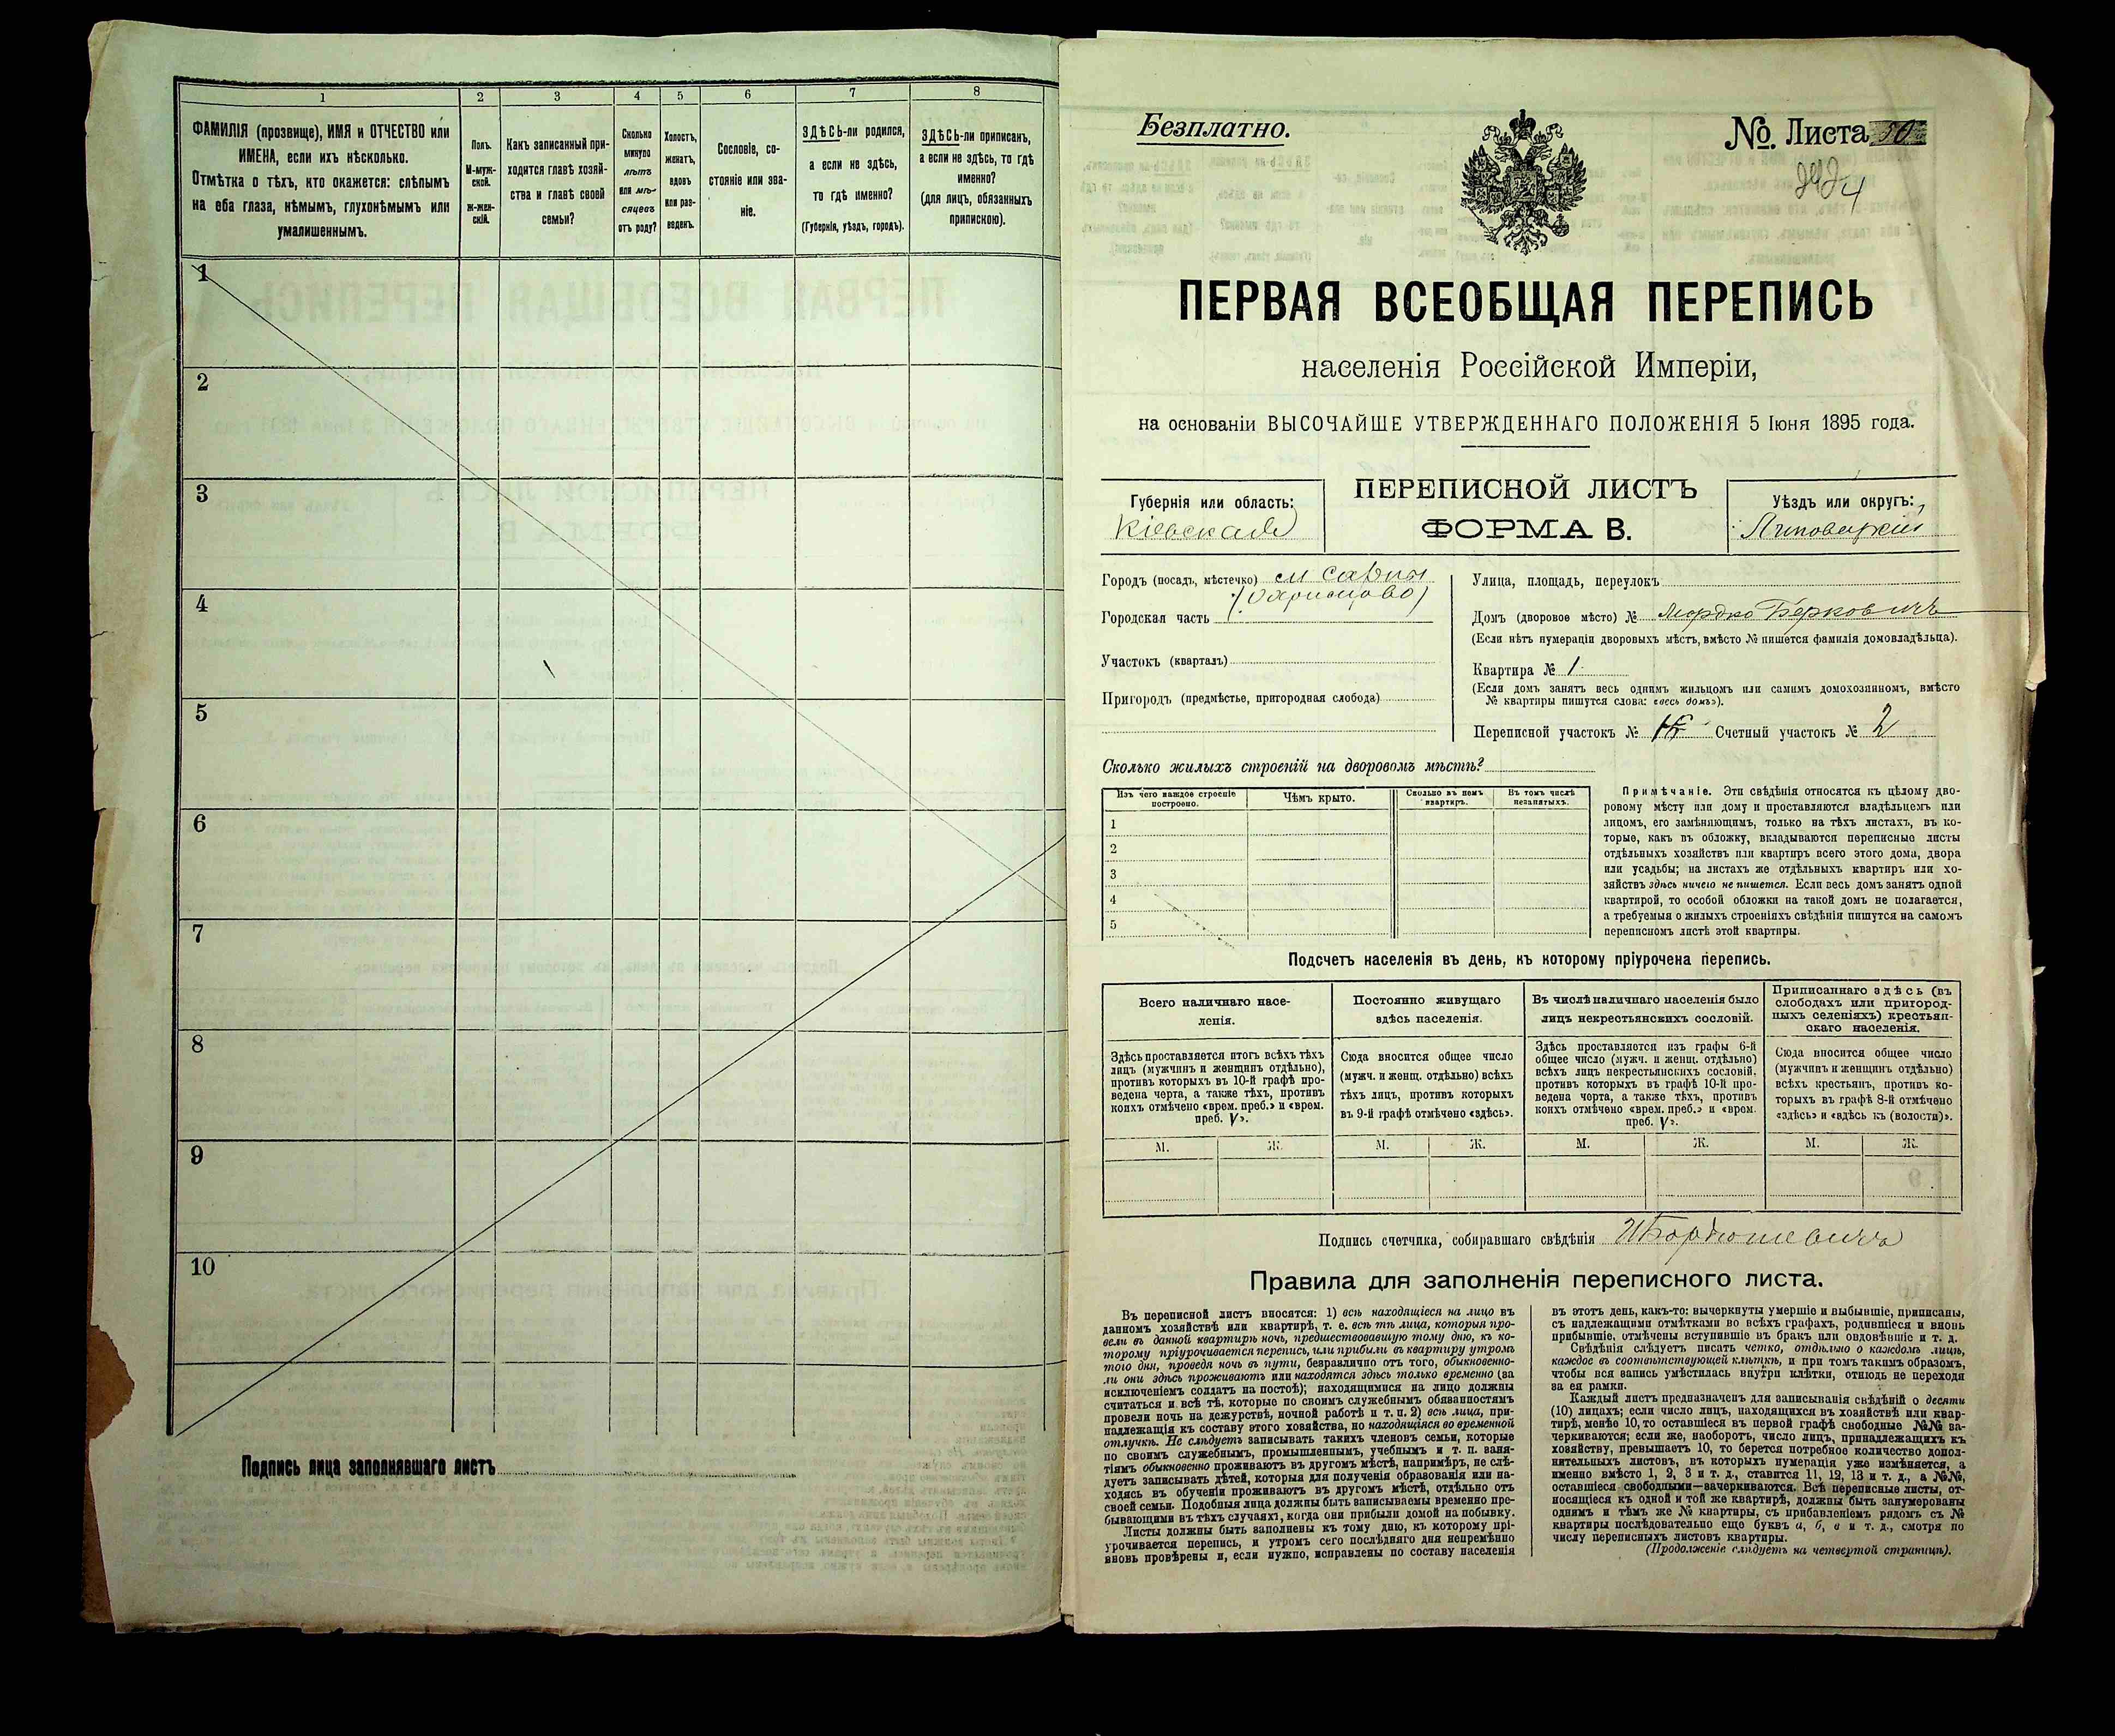 1 2 3 4 5 6 7 8
ФАМИЛІЯ (прозвище), ИМЯ и ОТЧЕСТВО или
ИМЕНА, если ихъ нѣсколько.
Отмѣтка о тѣхъ, кто окажется: слѣпымъ
на оба глаза, нѣмымъ, глухонѣмымъ или
умалишеннымъ.
Полъ.
М-муж-
ской.
Ж-жен-
скій.
Какъ записанный при-
ходится главѣ хозяй-
ства и главѣ своей
семьи?
Сколько
минуло
лѣтъ
или мѣ-
сяцевъ
отъ роду?
Холостъ,
женатъ,
вдовъ
или раз-
веденъ.
Сословіе, со-
стояніе или зва-
ніе.
ЗДѢСЬ-ли родился,
а если не здѣсь,
то гдѣ именно?
(Губернія, уѣздъ, городъ).
ЗДѢСЬ-ли приписанъ,
а если не здѣсь, то гдѣ
именно?
(для лицъ, обязанныхъ
припискою).
1
2
3
4
5
6
7
8
9
10
Подпись лица заполнявшаго листъ
Безплатно.
№ Листа 50
ПЕРВАЯ ВСЕОБЩАЯ ПЕРЕПИСЬ
населенія Россійской Имперіи,
на основаніи ВЫСОЧАЙШЕ УТВЕРЖДЕННАГО ПОЛОЖЕНІЯ 5 Іюня 1895 года.
Губернія или область:
Кіевская
ПЕРЕПИСНОЙ ЛИСТЪ
ФОРМА В.
Уѣздъ или округъ:
Липовецкій
Городъ (посадъ, мѣстечко)
Городская часть
Участокъ (кварталъ)
Пригородъ (предмѣстье, пригородная слобода)
Улица, площадь, переулокъ
Домъ (дворовое мѣсто) № Мордко Берковичъ
(Если нѣтъ нумераціи дворовыхъ мѣстъ, вмѣсто № пишется фамилія домовладѣльца).
Квартира № 1
(Если домъ занятъ весь однимъ жильцомъ или самимъ домохозяиномъ, вмѣсто
№ квартиры пишутся слова: «весь домъ»).
Переписной участокъ № Счетный участокъ № 2
Сколько жилыхъ строеній на дворовомъ мѣстѣ?
Изъ чего каждое строеніе
построено.
Чѣмъ крыто.
Сколько въ немъ
квартиръ.
Въ томъ числѣ
незанятыхъ.
1
2
3
4
5
Примѣчаніе. Эти свѣдѣнія относятся къ цѣлому дво-
ровому мѣсту или дому и проставляются владѣльцемъ или
лицомъ, его замѣняющимъ, только на тѣхъ листахъ, въ ко-
торые, какъ въ обложку, вкладываются переписные листы
отдѣльныхъ хозяйствъ или квартиръ всего этого дома, двора
или усадьбы; на листахъ же отдѣльныхъ квартиръ или хо-
зяйствъ здѣсь ничего не пишется. Если весь домъ занятъ одной
квартирой, то особой обложки на такой домъ не полагается,
а требуемыя о жилыхъ строеніяхъ свѣдѣнія пишутся на самомъ
переписномъ листѣ этой квартиры.
Подсчетъ населенія въ день, къ которому пріурочена перепись.
Всего наличнаго насе-
ленія.
Здѣсь проставляется итогъ всѣхъ тѣхъ
лицъ (мужчинъ и женщинъ отдѣльно),
противъ которыхъ въ 10-й графѣ про-
ведена черта, а также тѣхъ, противъ
коихъ отмѣчено «врем. преб.» и «врем.
преб. V».
Постоянно живущаго
здѣсь населенія.
Сюда вносится общее число
(мужч. и женщ. отдѣльно) всѣхъ
тѣхъ лицъ, противъ которыхъ
въ 9-й графѣ отмѣчено «здѣсь».
Въ числѣ наличнаго населенія было
лицъ некрестьянскихъ сословій.
Здѣсь проставляется изъ графы 6-й
общее число (мужч. и женщ. отдѣльно)
всѣхъ лицъ некрестьянскихъ сословій,
противъ которыхъ въ графѣ 10-й про-
ведена черта, а также тѣхъ, противъ
коихъ отмѣчено «врем. преб.» и «врем.
преб. V».
Приписаннаго здѣсь (въ
слободахъ или пригород-
ныхъ селеніяхъ) крестьян-
скаго населенія.
Сюда вносится общее число
(мужчинъ и женщинъ отдѣльно)
всѣхъ крестьянъ, противъ ко-
торыхъ въ графѣ 8-й отмѣчено
«здѣсь» и «здѣсь къ (волости)».
М. Ж. М. Ж. М. Ж. М. Ж.
Подпись счетчика, собиравшаго свѣдѣнія
Правила для заполненія переписного листа.
Въ переписной листъ вносятся: 1) всѣ находящіеся на лицо въ
данномъ хозяйствѣ или квартирѣ, т. е. всѣ тѣ лица, которыя про-
вели въ данной квартирѣ ночь, предшествовавшую тому дню, къ ко-
торому пріурочивается перепись, или прибыли въ квартиру утромъ
того дня, проведя ночь въ пути, безразлично отъ того, обыкновенно-
ли они здѣсь проживаютъ или находятся здѣсь только временно (за
исключеніемъ солдатъ на постоѣ); находящимися на лицо должны
считаться и всѣ тѣ, которые по своимъ служебнымъ обязанностямъ
провели ночь на дежурствѣ, ночной работѣ и т. п. 2) всѣ лица, при-
надлежащія къ составу этого хозяйства, но находящіяся во временной
отлучкѣ. Не слѣдуетъ записывать такихъ членовъ семьи, которые
по своимъ служебнымъ, промышленнымъ, учебнымъ и т. п. заня-
тіямъ обыкновенно проживаютъ въ другомъ мѣстѣ, напримѣръ, не слѣ-
дуетъ записывать дѣтей, которыя для полученія образованія или на-
ходясь въ обученіи проживаютъ въ другомъ мѣстѣ, отдѣльно отъ
своей семьи. Подобныя лица должны быть записываемы временно пре-
бывающими въ тѣхъ случаяхъ, когда они прибыли домой на побывку.
Листы должны быть заполнены къ тому дню, къ которому прі-
урочивается перепись, и утромъ сего послѣдняго дня непремѣнно
вновь провѣрены и, если нужно, исправлены по составу населенія
въ этотъ день, какъ-то: вычеркнуты умершіе и выбывшіе, приписаны,
съ надлежащими отмѣтками во всѣхъ графахъ, родившіеся и вновь
прибывшіе, отмѣчены вступившіе въ бракъ или овдовѣвшіе и т. д.
Свѣдѣнія слѣдуетъ писать четко, отдѣльно о каждомъ лицѣ,
каждое въ соотвѣтствующей клѣткѣ, и при томъ такимъ образомъ,
чтобы вся запись умѣстилась внутри клѣтки, отнюдь не переходя
за ея рамки.
Каждый листъ предназначенъ для записыванія свѣдѣній о десяти
(10) лицахъ; если число лицъ, находящихся въ хозяйствѣ или квар-
тирѣ, менѣе 10, то оставшіеся въ первой графѣ свободные №№ за-
черкиваются; если же, наоборотъ, число лицъ, принадлежащихъ къ
хозяйству, превышаетъ 10, то берется потребное количество допол-
нительныхъ листовъ, въ которыхъ нумерація уже измѣняется, а
именно вмѣсто 1, 2, 3 и т. д., ставится 11, 12, 13 и т. д., а №№,
оставшіеся свободными—зачеркиваются. Всѣ переписные листы, от-
носящіеся къ одной и той же квартирѣ, должны быть занумерованы
однимъ и тѣмъ же № квартиры, съ прибавленіемъ рядомъ съ №
квартиры послѣдовательно еще буквъ а, б, в и т. д., смотря по
числу переписныхъ листовъ квартиры.
(Продолженіе слѣдуетъ на четвертой страницѣ).